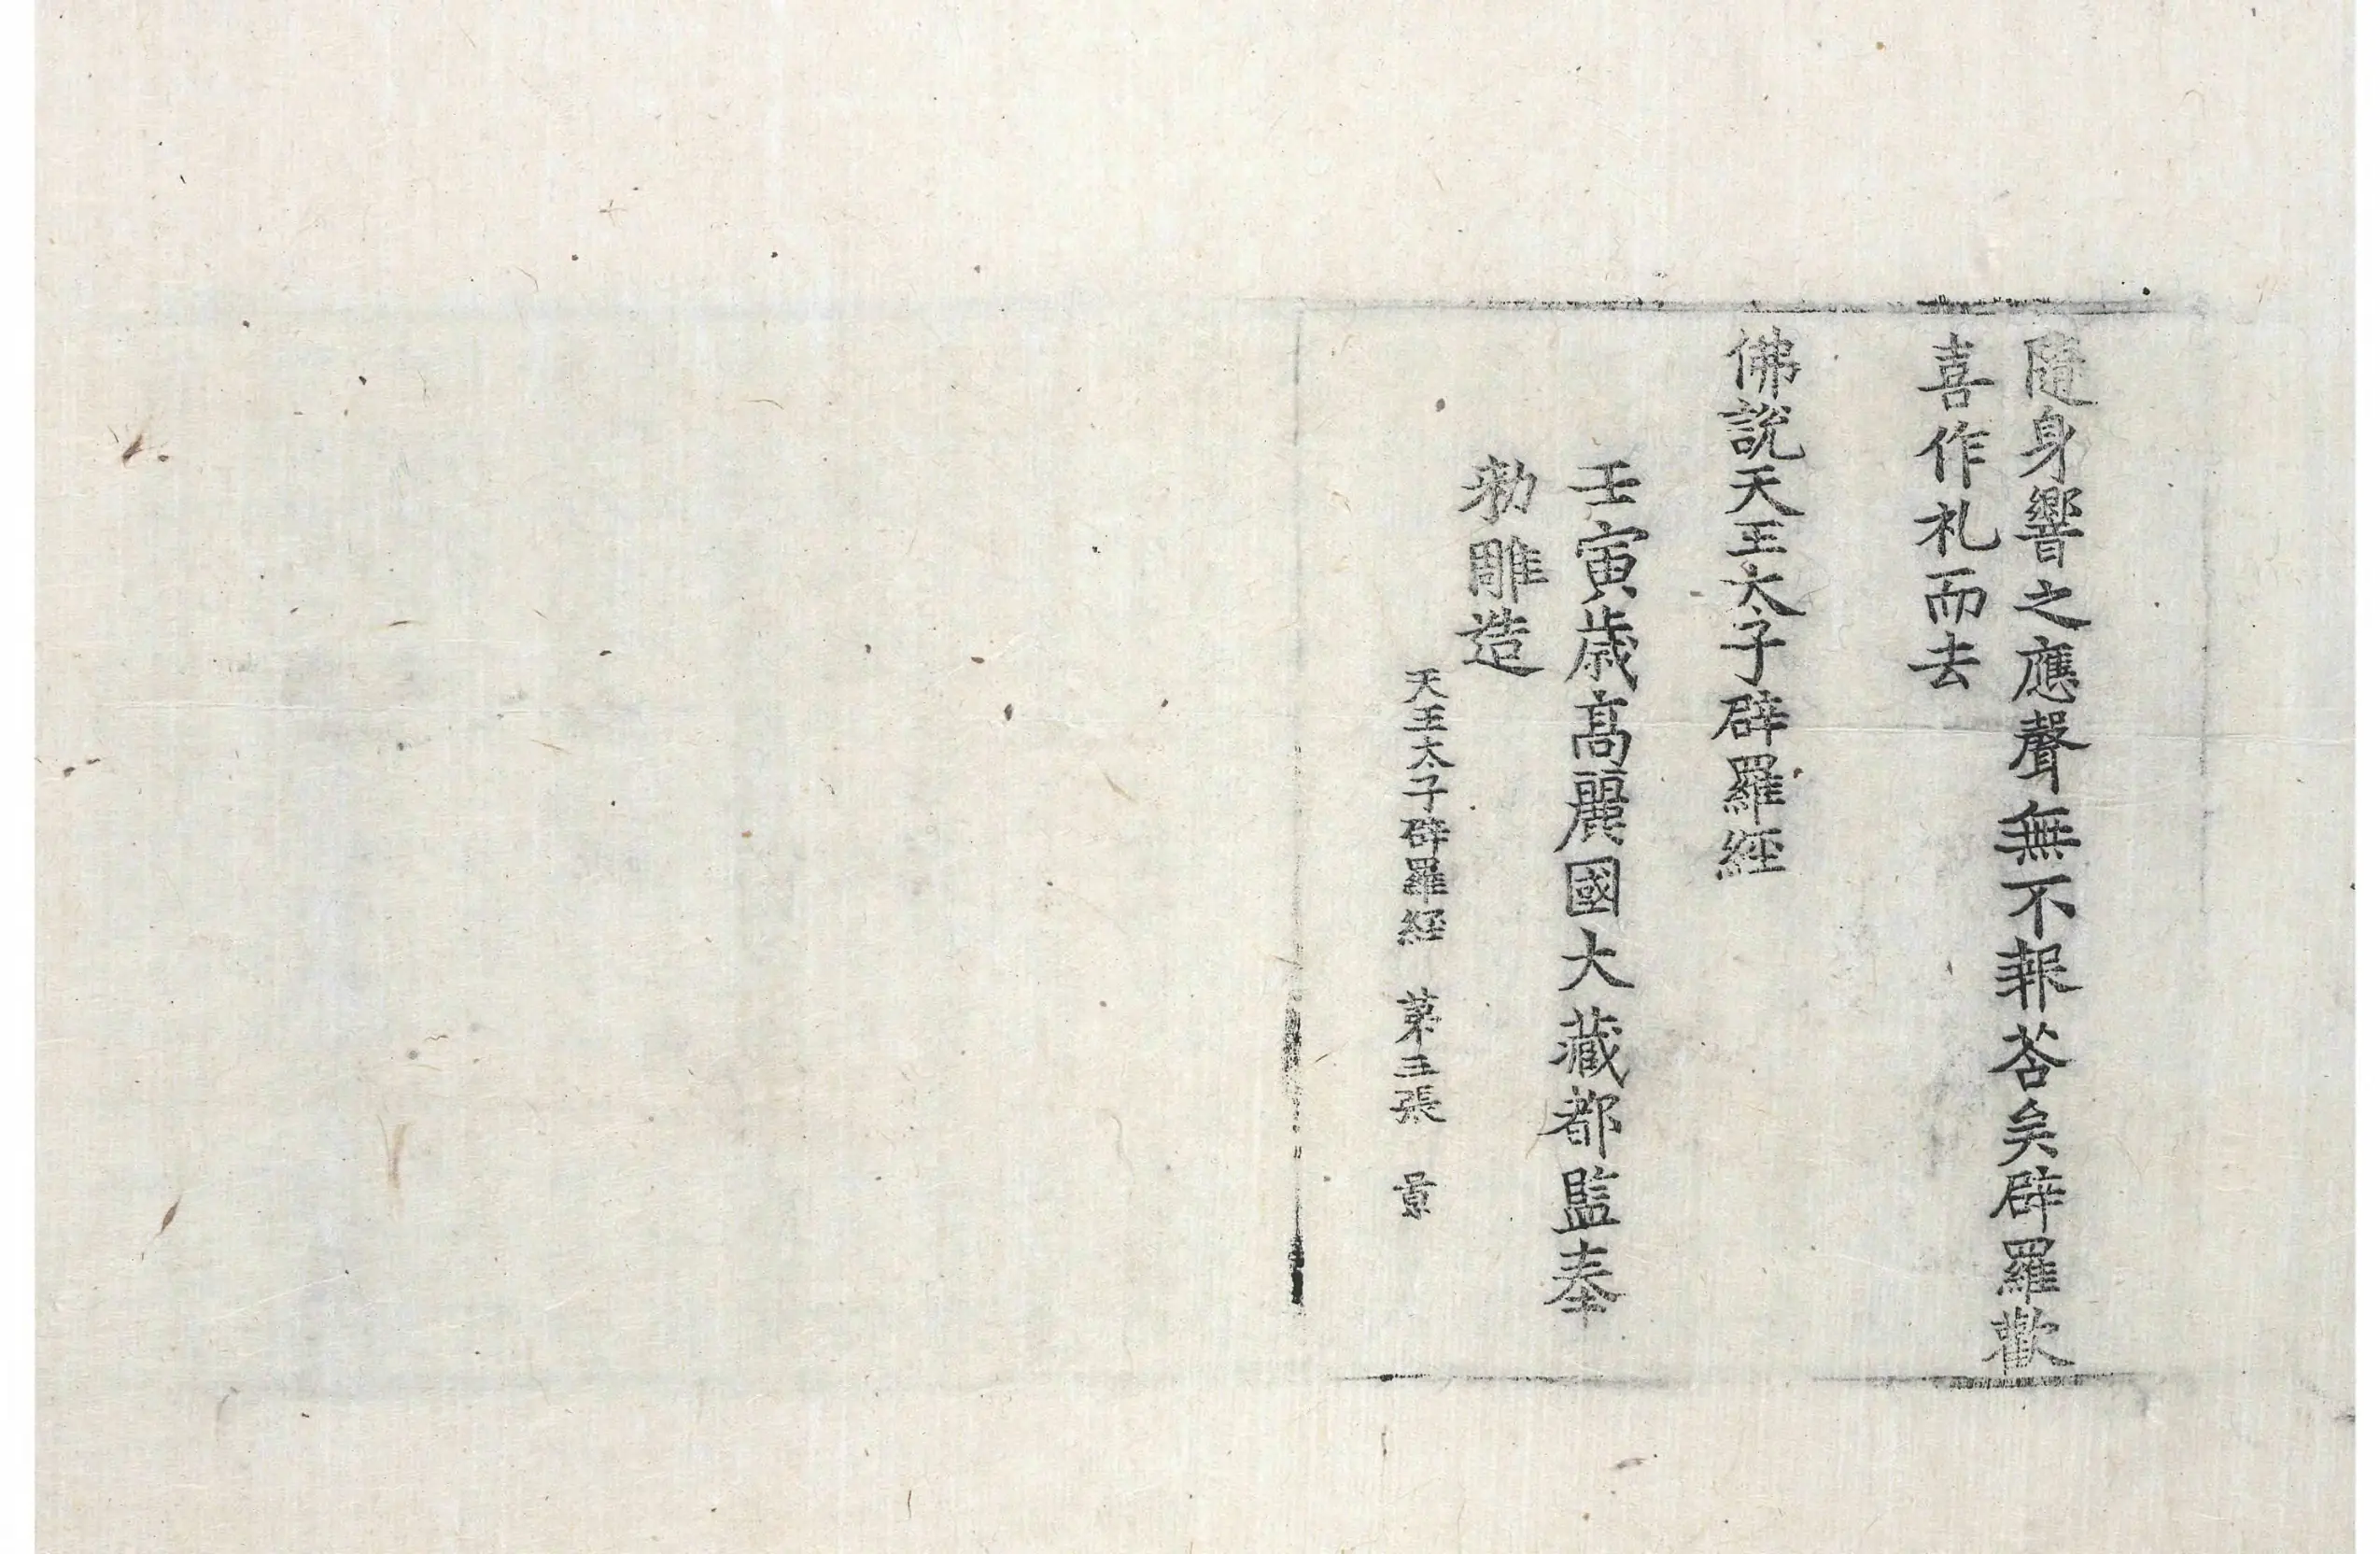 隨身響之應聲無不報荅矣辟羅歡
喜作礼而去
佛說天王太子辟羅經
壬寅歲高麗國大藏都監奉
勑雕造
天王太子辟羅經 第三張 景